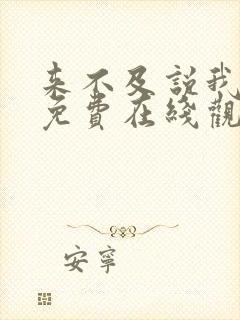 来不及説我
免費在綫觀
安寧